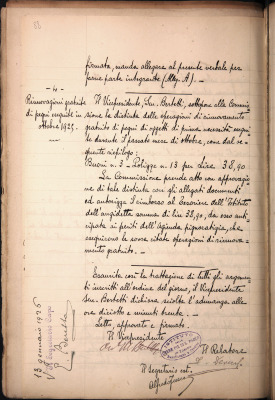 firmata, manda allegare al presente verbale per
farne parte integrante (Alleg. A). -
- 4 -
Rinnovazioni gratuite
di pegni eseguite in
ottobre 1925. -
Il Vicepresidente, Inv. Bertotti, sottopone alla Commis-
sione la distinta delle operazioni di rinnovamento
gratuito di pegni di oggetti di prima necessità esegui-
te durante il passato mese di ottobre, come dal se-
guente riepilogo:
Buoni n. 3 - Polizze n. 13 per Lire 38,90
La Commissione prende atto con approvazio-
ne di tale distinta con gli allegati documenti
ed autorizza il rimborso al Tesoriere dell'Istituto
dell'anzidetta somma di lire 38,90, da esso anti-
cipata ai periti dell'Agenzia pignoratizia, che
eseguirono le sovra citate operazioni di rinnova-
mento gratuito. -
Esaurita così la trattazione di tutti gli argomen-
ti inscritti all'ordine del giorno, il Vicepresidente
Bertotti dichiara sciolta l'adunanza alle
ore diciotto e minuti trenta. -
Letto, approvato e firmato.
Il Vicepresidente
Il Relatore
Il Segretario
13 gennaio 1926